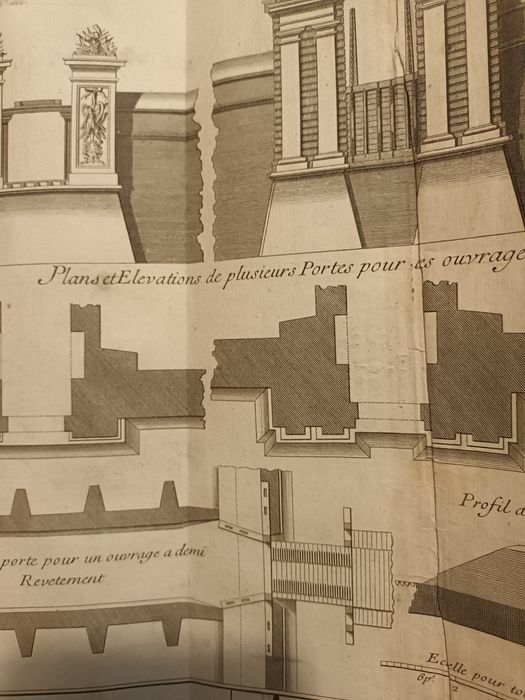 Plans et Elevations de plusieurs Portes pour les ouvrage
Profil d
porte pour un ouvrage a demi
Revetement
Ecelle pour to
6pi